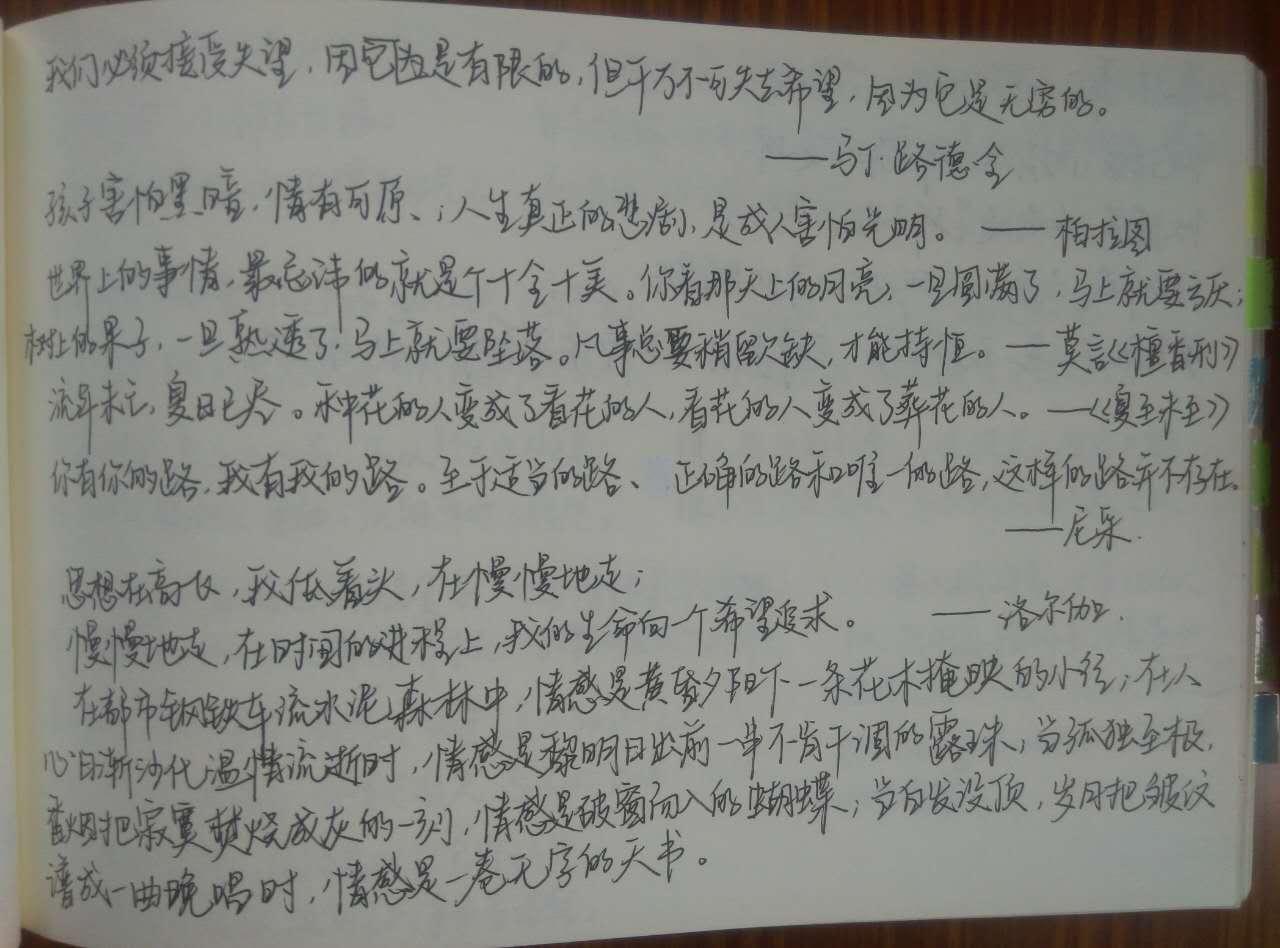 我们必须接受失望，因为它是有限的，但千万不可失去希望，因为它是无穷的。
——马丁·路德金
孩子害怕黑暗，情有可原、；人生真正的悲剧，是成人害怕光明。 ——柏拉图
世界上的事情，最忌讳的就是个十全十美。你看那天上的月亮，一旦圆满了，马上就要亏厌；
树上的果子，一旦熟透了，马上就要坠落。凡事总要稍留欠缺，才能持恒。 —莫言《檀香刑》
流年未亡，夏日已尽。种花的人变成了看花的人，看花的人变成了葬花的人。 —《夏至未至》
你有你的路，我有我的路。至于适当的路、正确的路和唯一的路，这样的路并不存在。
——尼采.
思想在高飞，我低着头，在慢慢地走；
慢慢地走，在时间的进程上，我的生命向一个希望追求。 ——洛尔伽.
在都市钢铁车流水泥森林中，情感是黄昏夕阳下一条花木掩映的小径；在人
心日渐沙化温情流逝时，情感是黎明日出前一串不肯干涸的露珠；当孤独至极，
香烟把寂寞焚烧成灰的一刻，情感是破窗而入的蝴蝶；当白发没顶，岁月把皱纹
谱成一曲晚唱时，情感是一卷无字的天书。